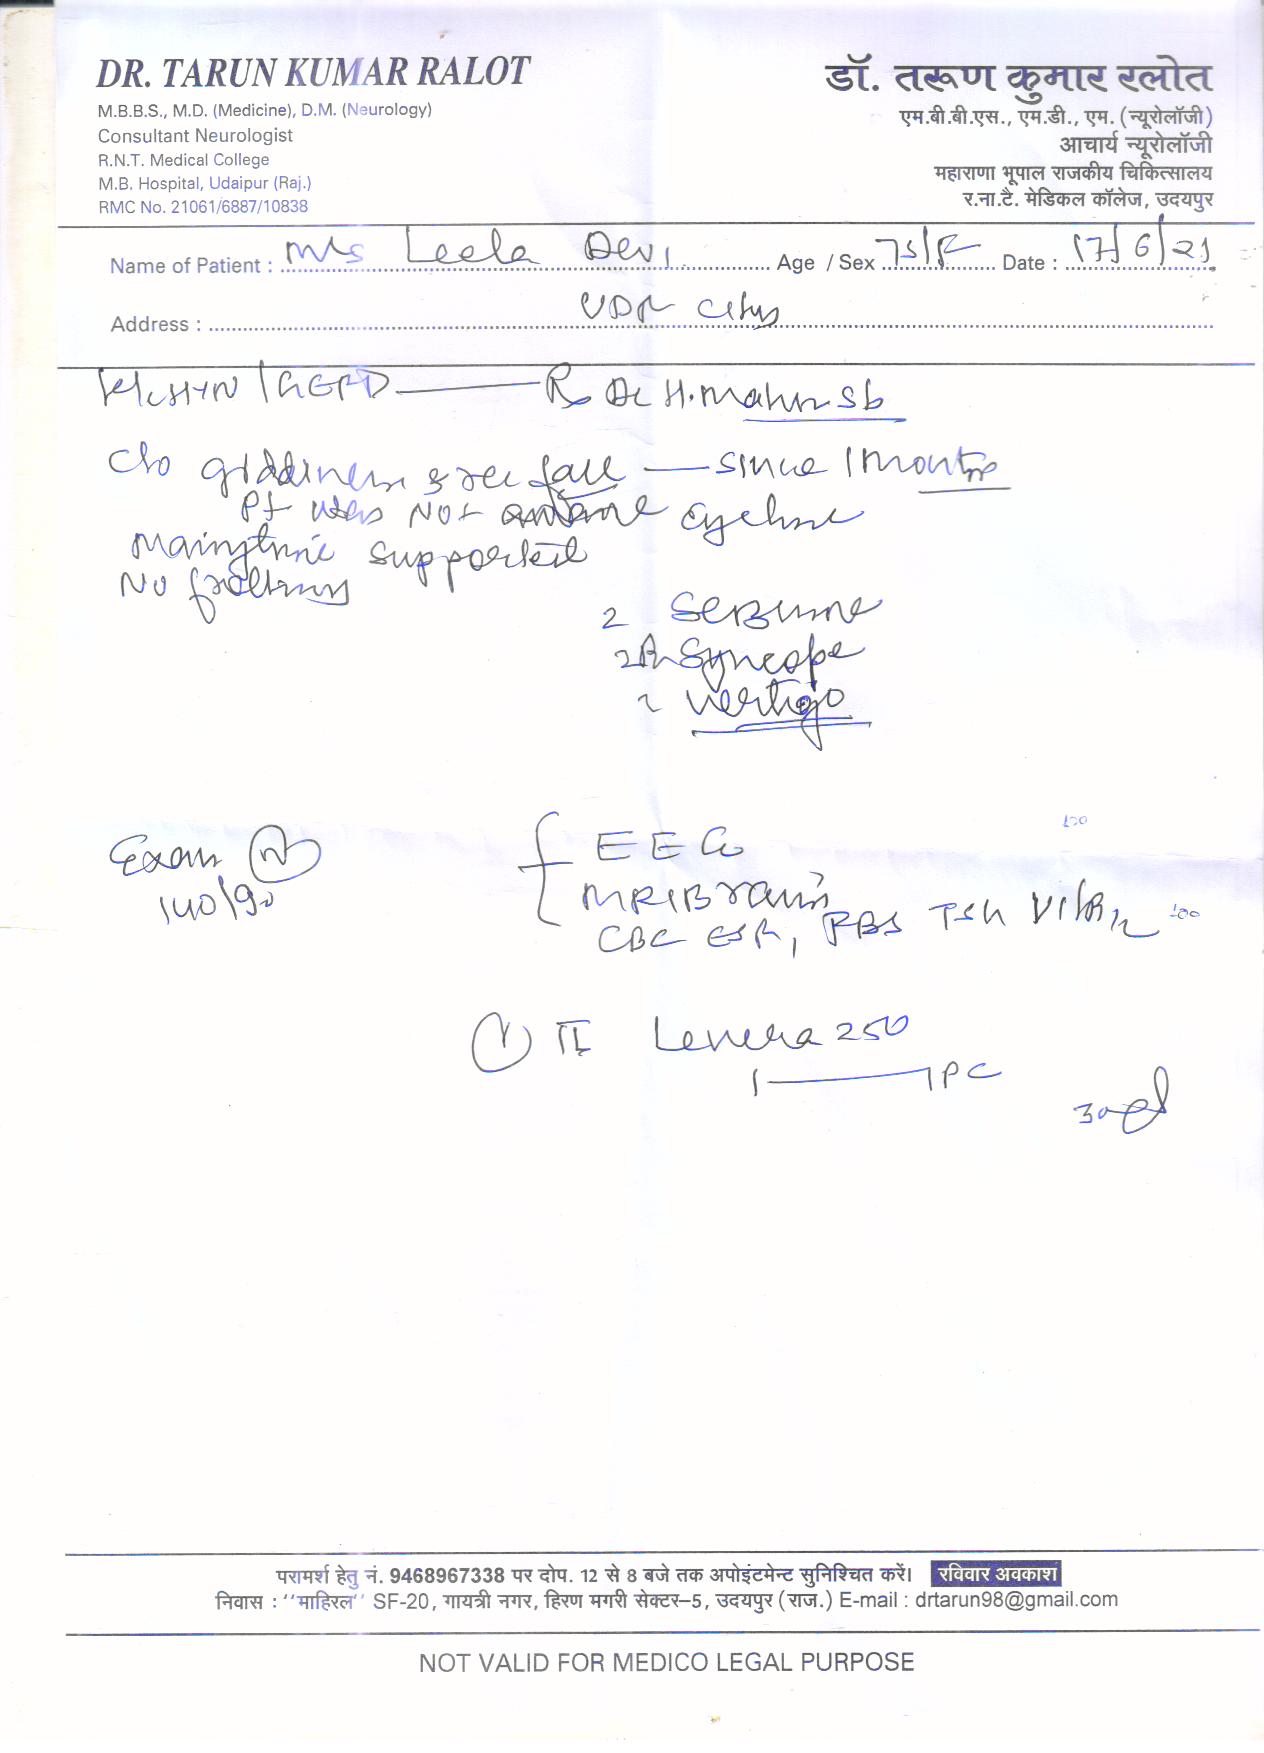 DR. TARUN KUMAR RALOT
M.B.B.S., M.D. (Medicine), D.M. (Neurology)
Consultant Neurologist
R.N.T. Medical College
M.B. Hospital, Udaipur (Raj.)
RMC No. 21061/6887/10838
डॉ. तरूण कुमार रलोत
एम.बी.बी.एस., एम.डी., एम. (न्यूरोलॉजी)
आचार्य न्यूरोलॉजी
महाराणा भूपाल राजकीय चिकित्सालय
र.ना.टै. मेडिकल कॉलेज, उदयपुर
Name of Patient : Mrs Leela Devi Age / Sex 75/F Date : 17/6/21
Address : UDR City
HTN
C/o giddiness fall since 1 month
Pt was Not
supported
No
Seizure
Syncope
Vertigo
Exam N
140/90
EEG
MRI Brain
CBC ESR, RBS TSH Vit B12
Levera 250
1 1 PC
परामर्श हेतु नं. 9468967338 पर दोप. 12 से 8 बजे तक अपोइंटमेन्ट सुनिश्चित करें। रविवार अवकाश
निवास : ''माहिरल'' SF-20, गायत्री नगर, हिरण मगरी सेक्टर-5, उदयपुर (राज.) E-mail : drtarun98@gmail.com
NOT VALID FOR MEDICO LEGAL PURPOSE